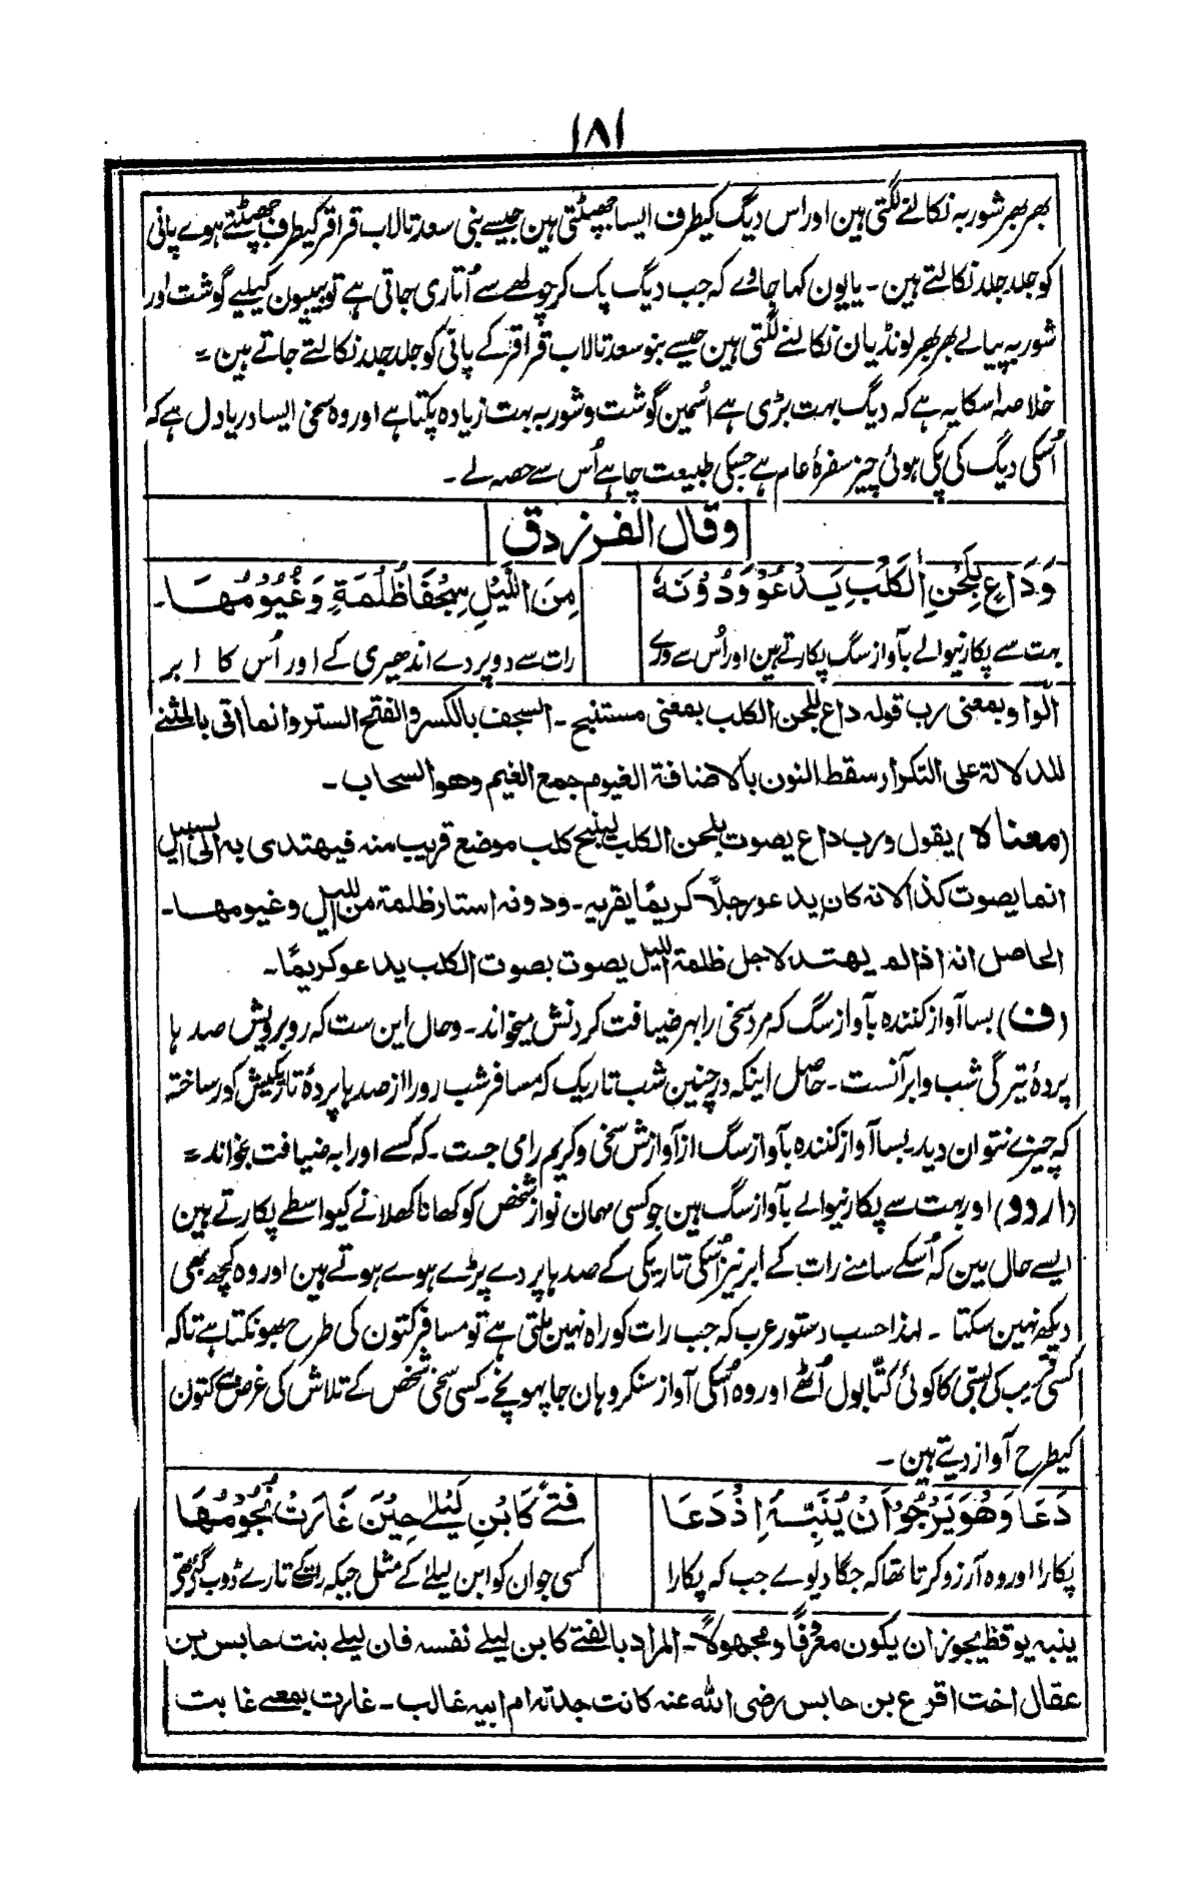 ۱۸۱
بھر بھر شوربہ نکالنے لگتی ہین اور اس دیگ کیطرف ایسا جھپٹتی ہین جیسے بنی سعد تالاب قراقر کیطرف جھپٹتے ہوے پانی
کو جلد جلد نکالتے ہین ۔ یا یون کہا جاوے کہ جب دیگ پک کر چولھے سے اُتاری جاتی ہے تو بیبیون کیلیے گوشت اور
شوربہ پیالے بھر بھر لونڈیان نکالنے لگتی ہین جیسے بنو سعد تالاب قراقر کے پانی کو جلد جلد نکالتے جاتے ہین =
خلاصہ اسکا یہ ہے کہ دیگ بہت بڑی ہے اُسمین گوشت و شوربہ بہت زیادہ پکتا ہے اور وہ سخی ایسا دریا دل ہے کہ
اُسکی دیگ کی پکی ہوئی چیز سفرۂ عام ہے جسکی طبیعت چاہے اُس سے حصہ لے ۔
وقال الفرزدق
وَدَاعٍ بِلَحْنِ الْكَلْبِ يَدْعُوْ وَدُوْنَهٗ
مِنَ اللَّيْلِ سِجْفَا ظُلْمَةٍ وَغُيُوْمُهَا۔
بہت سے پکارنیوالے بآواز سگ پکارتے ہین اور اُس سے ورے
رات سے دو پردے اندھیری کے اور اُس کا ابر
الواو بمعنى رب قوله داع بلحن الكلب بمعنى مستنبح ۔ السجف بالكسر والفتح الستر وانما اتى بالمثنى
للدلالة على التكرار سقط النون بالاضافة الغيوم جمع الغيم وهو السحاب ۔
(معناه) يقول ورب داع يصوت بلحن الكلب لينبح كلب موضع قريب منه فيهتدى به الى السبيل
انما يصوت كذا لانه كان يدعو رجلاً كريمًا يقريه ۔ ودونه استار ظلمة من الليل وغيومها ۔
الحاصل انه اذا لم يهتد لاجل ظلمة الليل يصوت بصوت الكلب يدعو كريمًا ۔
(ف) بسا آواز کنندہ بآواز سگ کہ مرد سخی را بہر ضیافت کردنش میخواند ۔ وحال این ست کہ روبرویش صد ہا
پردۂ تیرگی شب و ابر آنست ۔ حاصل اینکہ در چنین شب تاریک کہ مسافر شب رو را از صد ہا پردۂ تاریکیش کور ساختہ
کہ چیزے نتوان دید ۔ بسا آواز کنندہ بآواز سگ از آوازش سخی و کریم را می جست ۔ کہ کسے او را بہ ضیافت بخواند =
(اردو) اور بہت سے پکارنیوالے بآواز سگ ہین جو کسی مہمان نواز شخص کو کھانا کھلانے کیواسطے پکارتے ہین
ایسے حال مین کہ اُسکے سامنے رات کے ابر نیز اُسکی تاریکی کے صد ہا پردے پڑے ہوے ہوتے ہین اور وہ کچھ بھی
دیکھ نہین سکتا ۔ لہذا حسب دستور عرب کہ جب رات کو راہ نہین ملتی ہے تو مسافر کتون کی طرح بھونکتا ہے تاکہ
کسی قریب کی بستی کا کوئی کتّا بول اُٹھے اور وہ اُسکی آواز سنکر وہان جا پہونچے ۔ کسی سخی شخص کے تلاش کی غرض سے کتون
کیطرح آواز دیتے ہین ۔
دَعَا وَهُوَ يَرْجُوْ اَنْ يُنَبِّهَ اِذْ دَعَا
فَتًى كَابْنِ لَيْلٰى حِيْنَ غَارَتْ نُجُوْمُهَا
پکارا اور وہ آرزو کرتا تھا کہ جگا دیوے جب کہ پکارا
کسی جوان کو ابن لیلے کے مثل جبکہ رات کے تارے ڈوب گئے تھے
ينبه يوقظ يجوز ان يكون معروفًا ومجهولاً ۔ المراد بالفتى كابن ليلے نفسه فان ليلے بنت حابس بن
عقال اخت اقرع بن حابس رضى الله عنه كانت جدته ام ابيه غالب ۔ غارت بمعنے غابت